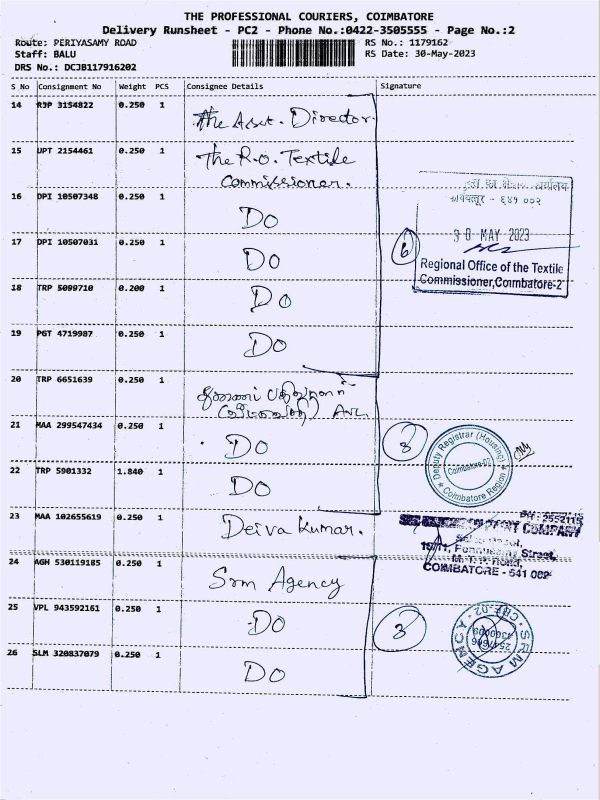 THE PROFESSIONAL COURIERS, COIMBATORE
Delivery Runsheet - PC2 - Phone No.:0422-3505555 - Page No.:2
Route: PERIYASAMY ROAD
RS No.: 1179162
Staff: BALU
RS Date: 30-May-2023
DRS No.: DCJB117916202
S No Consignment No Weight PCS Consignee Details Signature
14 RJP 3154822 0.250 1 The Asst. Director.
15 UPT 2154461 0.250 1 The R.o. Textile
Commissioner.
16 DPI 10507348 0.250 1 Do
17 DPI 10507031 0.250 1 Do
18 TRP 5099710 0.200 1 Do
19 PGT 4719987 0.250 1 Do
6
कोयम्बतूर - ६४१ ००२
30 MAY 2023
Regional Office of the Textile
Commissioner, Coimbatore-2
20 TRP 6651639 0.250 1
21 MAA 299547434 0.250 1 Do
22 TRP 5901332 1.840 1 Do
3
Deputy Registrar (Housing)
Coimbatore-02
Coimbatore Region
23 MAA 102655619 0.250 1 Deiva Kumar.
COMPANY
Street,
COIMBATORE - 641 002
24 AGH 530119185 0.250 1 Srm Agency
25 VPL 943592161 0.250 1 Do
26 SLM 320837079 0.250 1 Do
3
SRM AGENCY
CBE-02